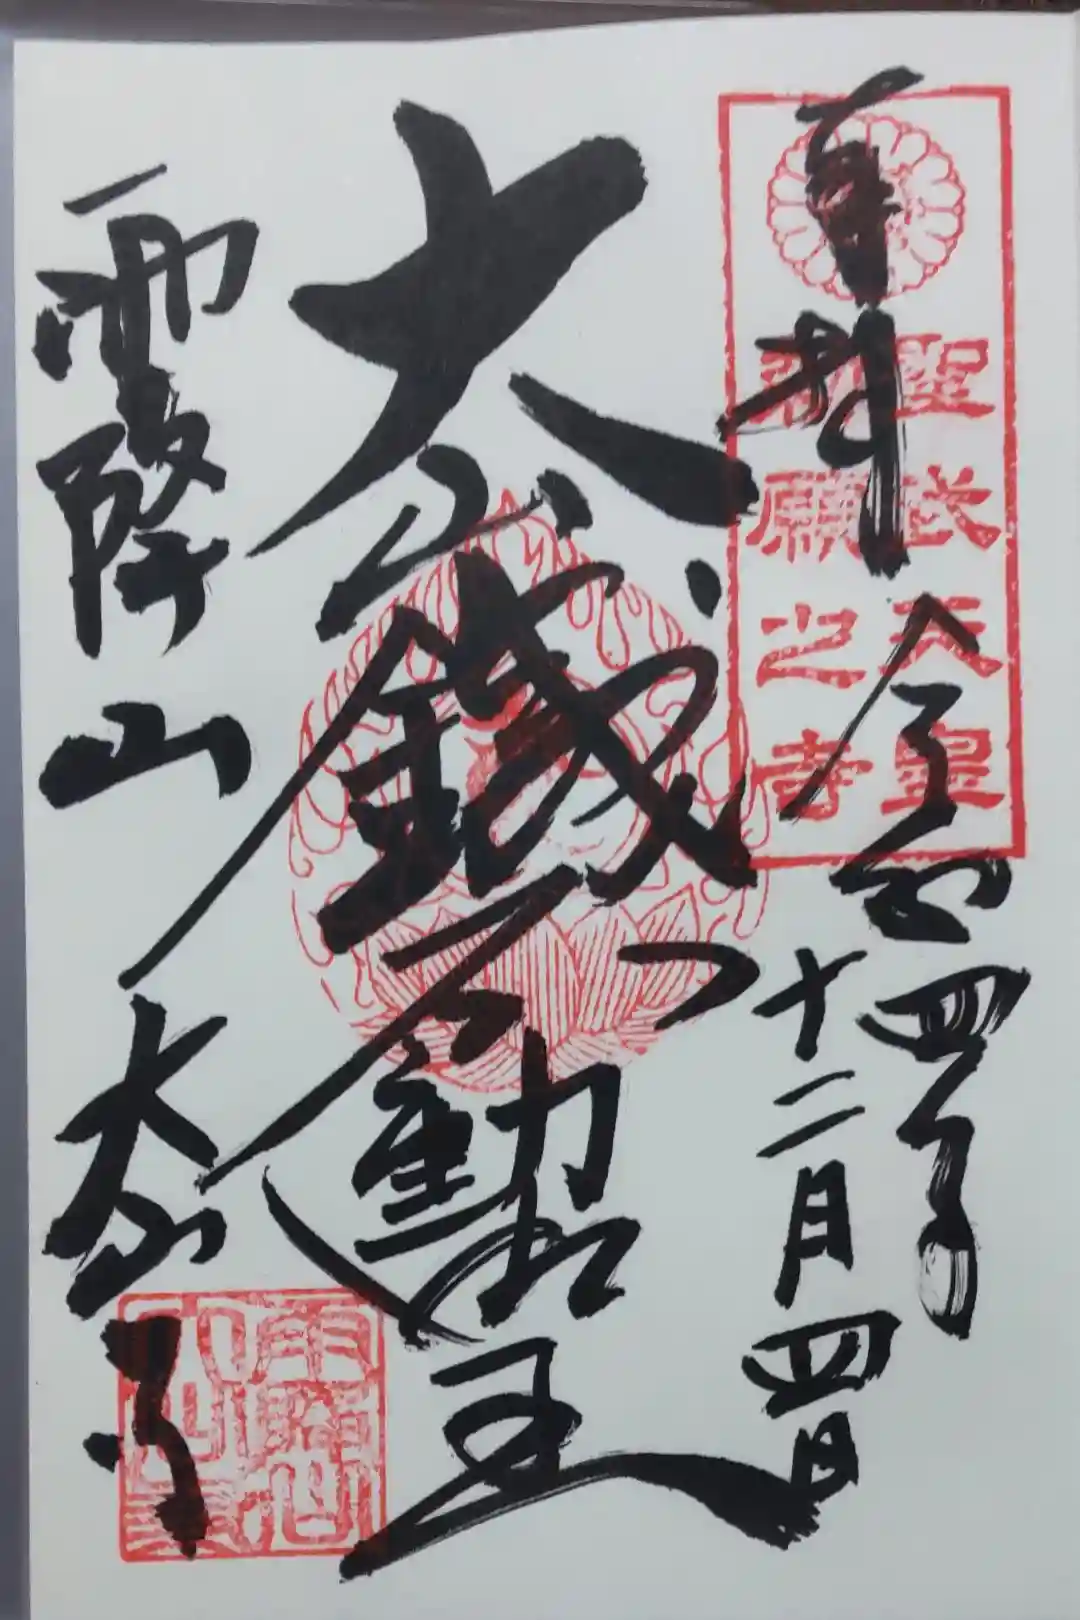 奉拝
令和四年
十二月四日
聖武天皇
勅願之寺
大山鐵不動明王
雨降山
大山寺